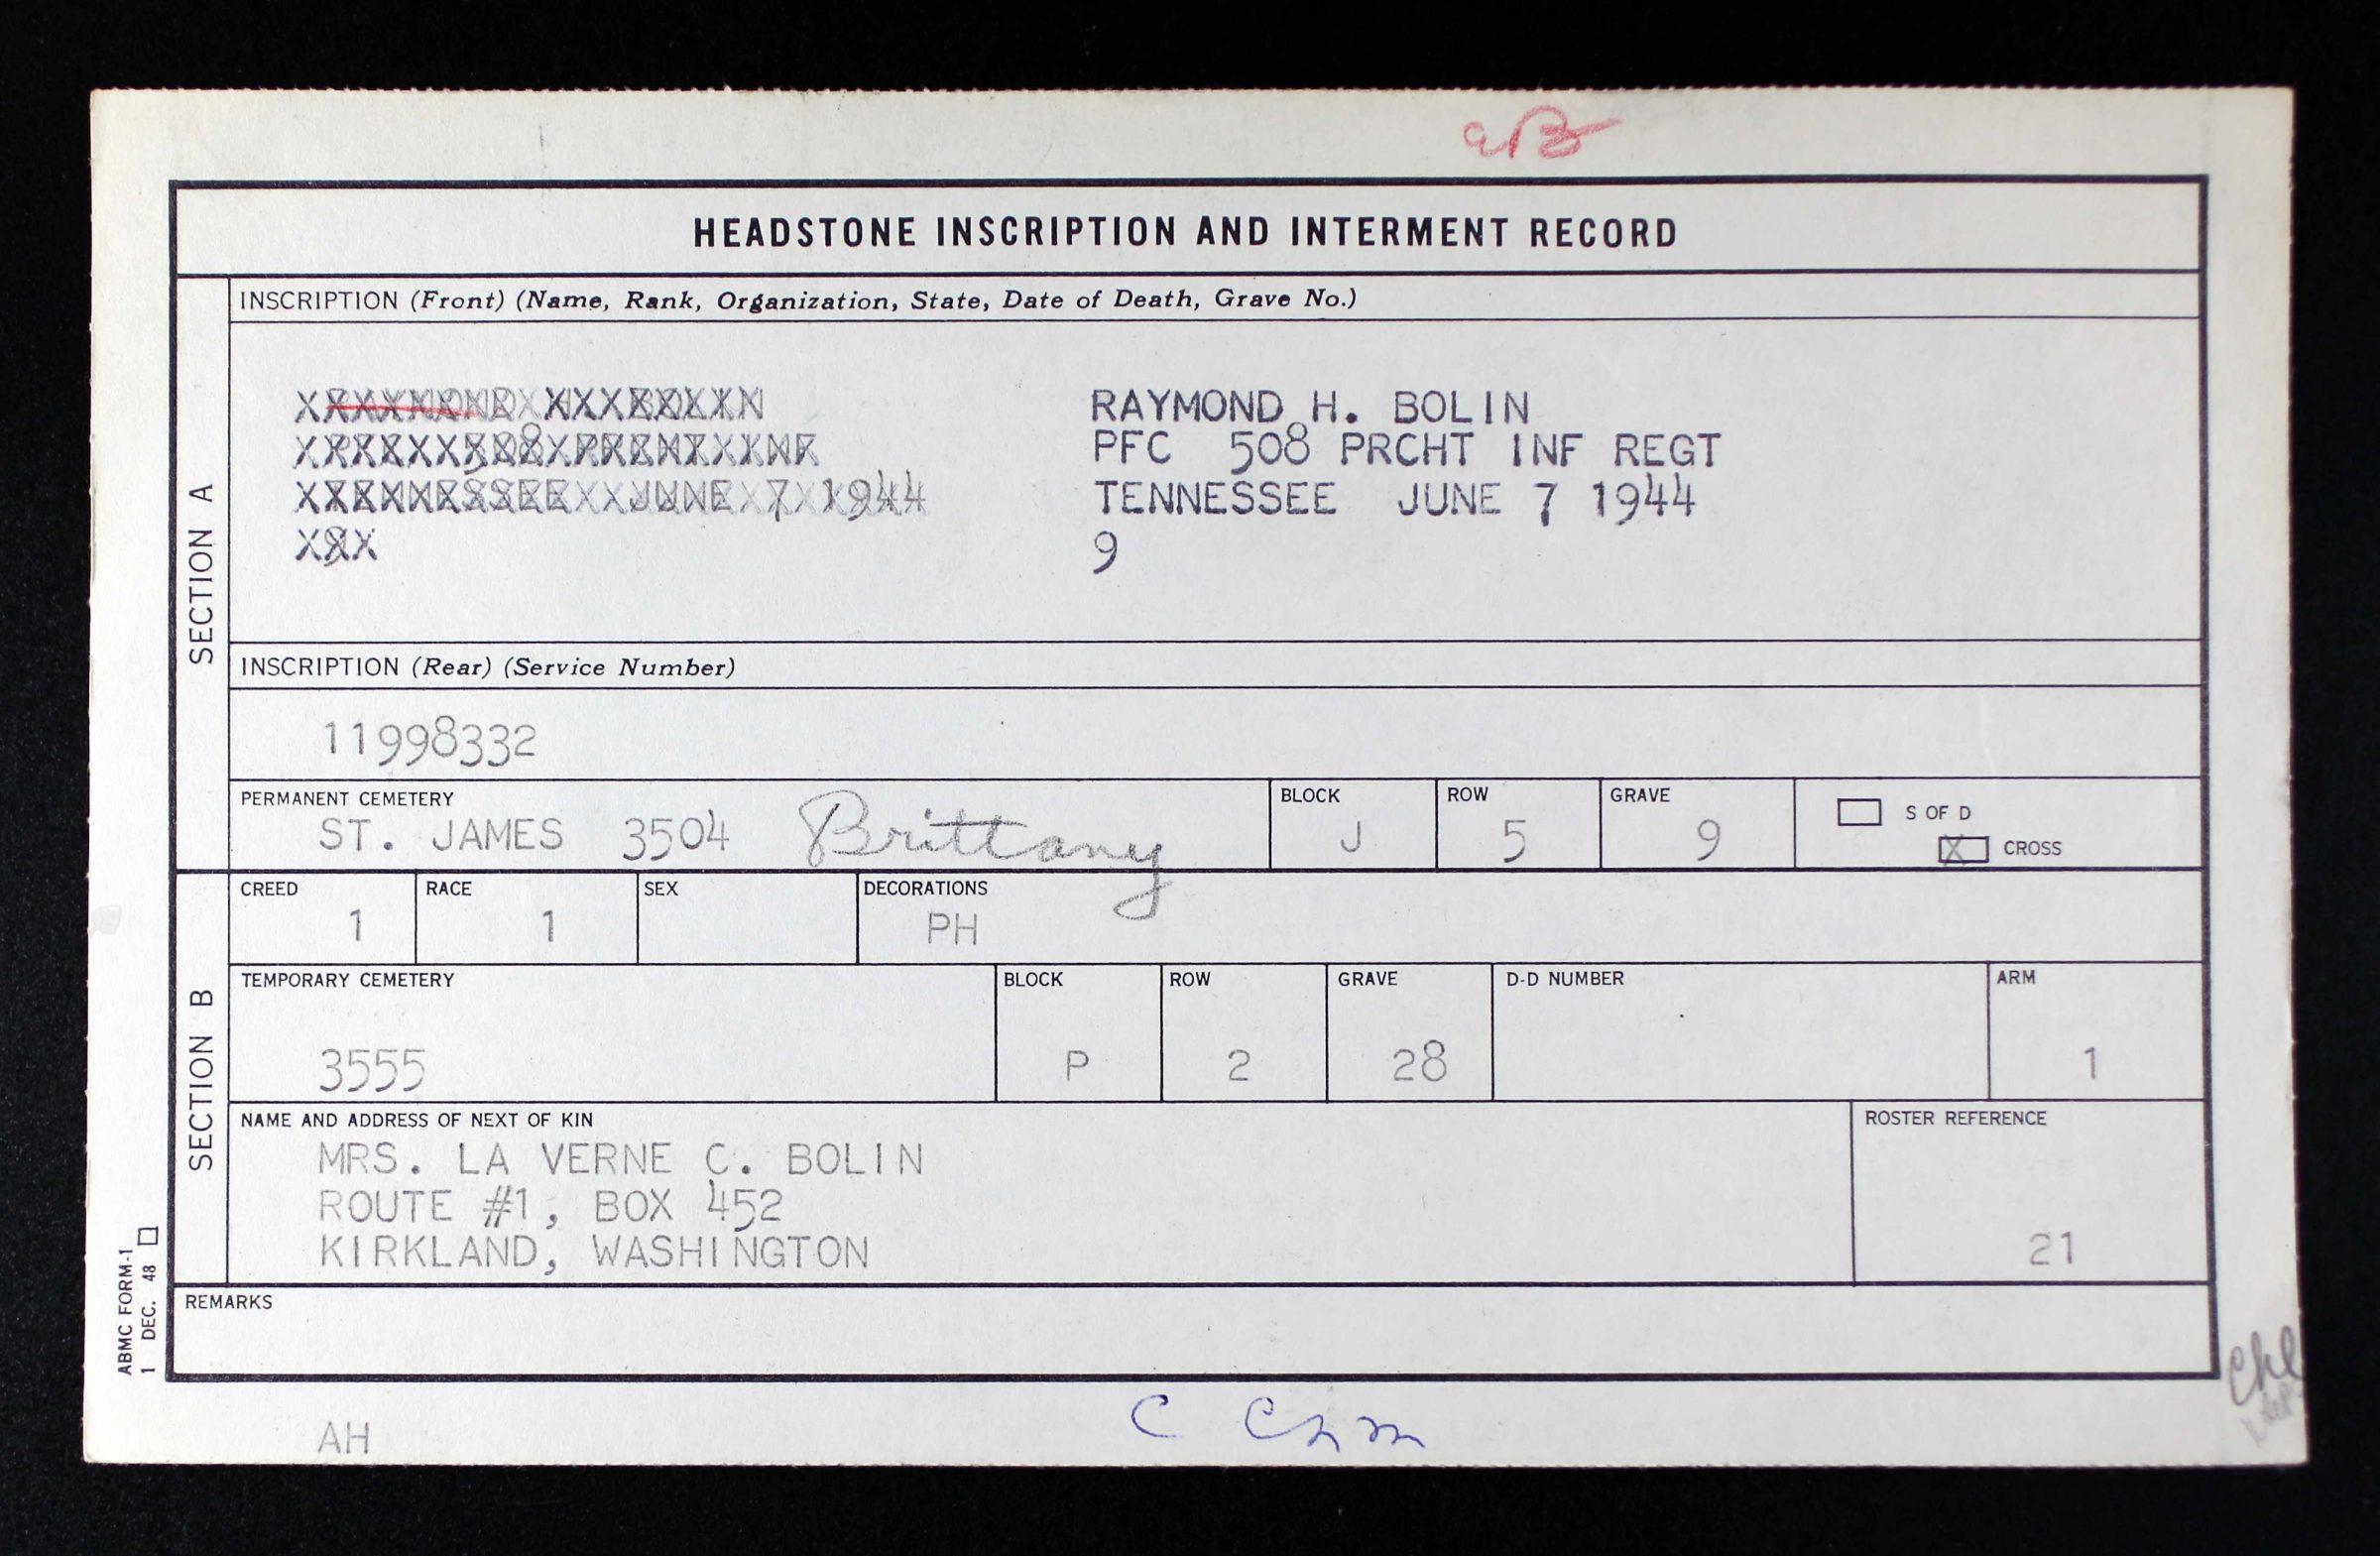 HEADSTONE INSCRIPTION AND INTERMENT RECORD
SECTION A
INSCRIPTION (Front) (Name, Rank, Organization, State, Date of Death, Grave No.)
RAYMOND H. BOLIN
PFC 508 PRCHT INF REGT
TENNESSEE JUNE 7 1944
9
INSCRIPTION (Rear) (Service Number)
11998332
PERMANENT CEMETERY BLOCK ROW GRAVE
ST. JAMES 3504 Brittany J 5 9
S OF D
X CROSS
SECTION B
CREED RACE SEX DECORATIONS
1 1 PH
TEMPORARY CEMETERY BLOCK ROW GRAVE D-D NUMBER ARM
3555 P 2 28 1
NAME AND ADDRESS OF NEXT OF KIN ROSTER REFERENCE
MRS. LA VERNE C. BOLIN
ROUTE #1, BOX 452
KIRKLAND, WASHINGTON 21
REMARKS
ABMC FORM-1
1 DEC. 48
AH